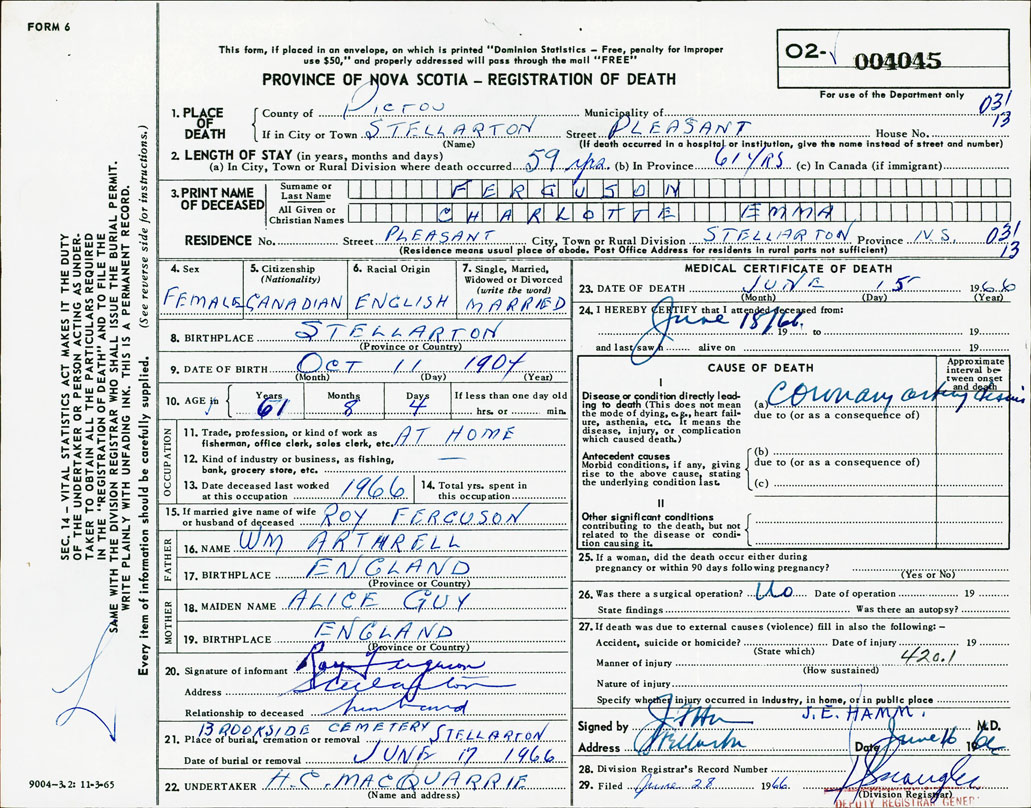 FORM 6
This form, if placed in an envelope, on which is printed "Dominion Statistics – Free, penalty for improper
use $50," and properly addressed will pass through the mail "FREE"
PROVINCE OF NOVA SCOTIA – REGISTRATION OF DEATH
02- 004045
For use of the Department only
1. PLACE OF DEATH County of PICTOU Municipality of 031 13
If in City or Town STELLARTON Street PLEASANT House No.
(Name) (If death occurred in a hospital or institution, give the name instead of street and number)
2. LENGTH OF STAY (in years, months and days)
(a) In City, Town or Rural Division where death occurred 59 yrs. (b) In Province 61 YRS (c) In Canada (if immigrant)
3. PRINT NAME OF DECEASED Surname or Last Name FERGUSON
All Given or Christian Names CHARLOTTE EMMA
RESIDENCE No. Street PLEASANT City, Town or Rural Division STELLARTON Province N.S. 031 13
(Residence means usual place of abode. Post Office Address for residents in rural parts not sufficient)
4. Sex FEMALE
5. Citizenship (Nationality) CANADIAN
6. Racial Origin ENGLISH
7. Single, Married, Widowed or Divorced (write the word) MARRIED
8. BIRTHPLACE STELLARTON
(Province or Country)
9. DATE OF BIRTH OCT 11 1904
(Month) (Day) (Year)
10. AGE in Years 61 Months 8 Days 4 If less than one day old hrs. or min.
OCCUPATION
11. Trade, profession, or kind of work as fisherman, office clerk, sales clerk, etc. AT HOME
12. Kind of industry or business, as fishing, bank, grocery store, etc. —
13. Date deceased last worked at this occupation 1966
14. Total yrs. spent in this occupation
15. If married give name of wife or husband of deceased ROY FERGUSON
FATHER
16. NAME WM ARTHRELL
17. BIRTHPLACE ENGLAND
(Province or Country)
MOTHER
18. MAIDEN NAME ALICE GUY
19. BIRTHPLACE ENGLAND
(Province or Country)
20. Signature of informant Roy Ferguson
Address Stellarton
Relationship to deceased husband
21. Place of burial, cremation or removal BROOKSIDE CEMETERY STELLARTON
Date of burial or removal JUNE 17 1966
22. UNDERTAKER H.C. MACQUARRIE
(Name and address)
MEDICAL CERTIFICATE OF DEATH
23. DATE OF DEATH JUNE 15 1966
(Month) (Day) (Year)
24. I HEREBY CERTIFY that I attended deceased from:
June 15/66. 19 to 19
and last saw h alive on 19
CAUSE OF DEATH
Approximate interval between onset and death
I
Disease or condition directly leading to death (This does not mean the mode of dying, e.g., heart failure, asthenia, etc. It means the disease, injury, or complication which caused death.)
(a) Coronary artery
due to (or as a consequence of)
Antecedent causes
Morbid conditions, if any, giving rise to the above cause, stating the underlying condition last.
(b)
due to (or as a consequence of)
(c)
II
Other significant conditions
contributing to the death, but not related to the disease or condition causing it.
25. If a woman, did the death occur either during
pregnancy or within 90 days following pregnancy?
(Yes or No)
26. Was there a surgical operation? No Date of operation 19
State findings Was there an autopsy?
27. If death was due to external causes (violence) fill in also the following: –
Accident, suicide or homicide? Date of injury 19
(State which) 420.1
Manner of injury
(How sustained)
Nature of injury
Specify whether injury occurred in industry, in home, or in public place
Signed by J.E. HAMM. M.D.
Address Stellarton Date June 16 1966
28. Division Registrar's Record Number
29. Filed June 28 1966
(Division Registrar)
DEPUTY REGISTRAR GENER
SEC. 14 – VITAL STATISTICS ACT MAKES IT THE DUTY
OF THE UNDERTAKER OR PERSON ACTING AS UNDER-
TAKER TO OBTAIN ALL THE PARTICULARS REQUIRED
IN THE "REGISTRATION OF DEATH" AND TO FILE THE
SAME WITH THE DIVISION REGISTRAR WHO SHALL ISSUE THE BURIAL PERMIT.
WRITE PLAINLY WITH UNFADING INK. THIS IS A PERMANENT RECORD.
Every item of information should be carefully supplied. (See reverse side for instructions.)
9004–3.2: 11-3-65